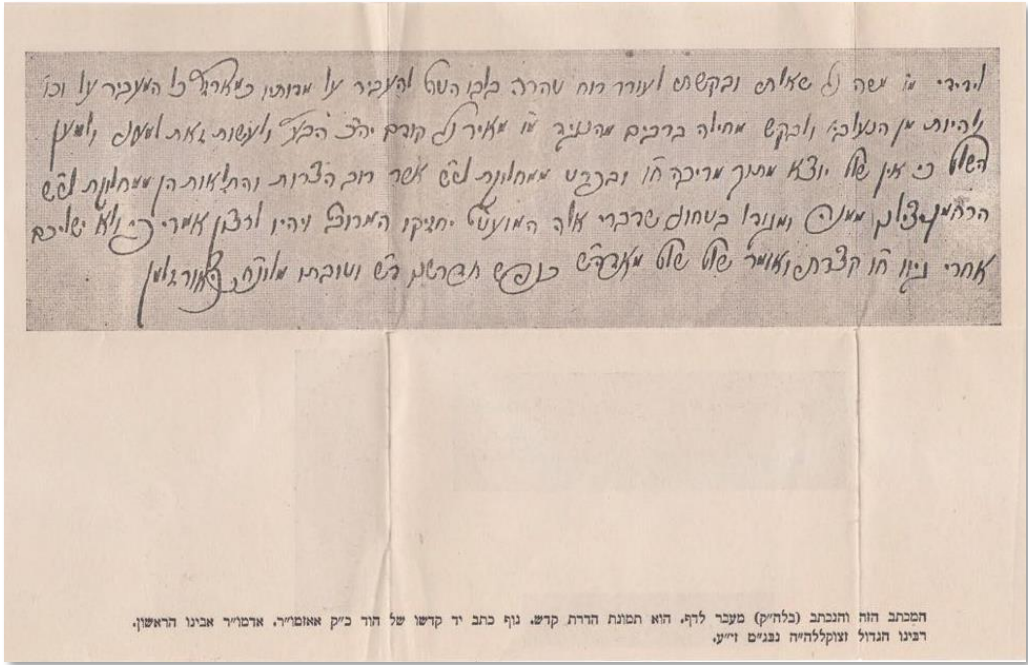 לידידי מו' משה נ"י שאלתי ובקשתי לעורר רוח טהרה בלבו הטוב להעביר על מדותיו כמארז"ל כל המעביר על וכו'
ולהיות מן הנעלבי' ולבקש מחילה ברבים מהנגיד מו' מאיר נ"י קודם יה"כ ולעשות זאת למעני ולמען
השלו' כי אין שלו' יוצא מתוך מריבה ח"ו ובפרט ממחלוקת לש"ש אשר רוב הצרות והתלאות הן ממחלוקת לש"ש
הרחמן יצילנו בטחוני שדברי אלה המועטי' יחזיקו המרובה ויהיו לרצון אמרי פי ולא ישליכם
אחרי גיוו ח"ו קצרתי ואומר שלו' שלו' כנפש וטובתו
המכתב הזה והנכתב (בלה״ק) מעבר לדף. הוא תמונת הדרת קדש. גוף כתב יד קדשו של הוד כ״ק אאזמו״ר. אדמו״ר אבינו הראשון.
רבינו הגדול זצוקללה״ה נבג״ם זי״ע.